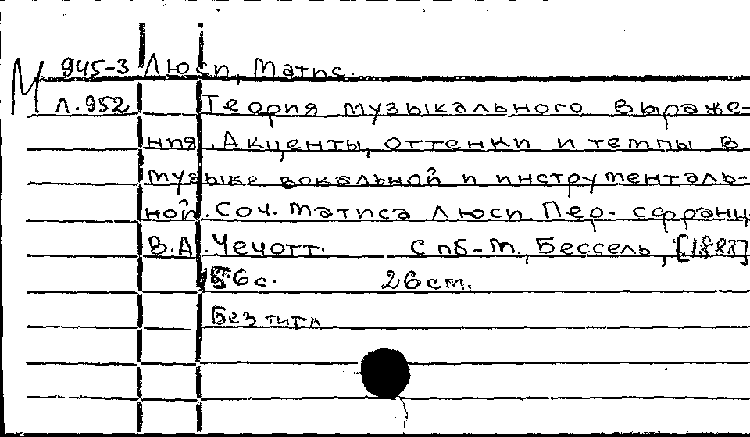 М 945-3 Люси, Матис.
Л.952 Теория музыкального выраже-
ния. Акценты, оттенки и темпы в
музыке вокальной и инструменталь-
ной. Соч. Матиса Люси Пер. с франц
В.А. Чечотт. СПб-М, Бессель,
26 см.
Без титл